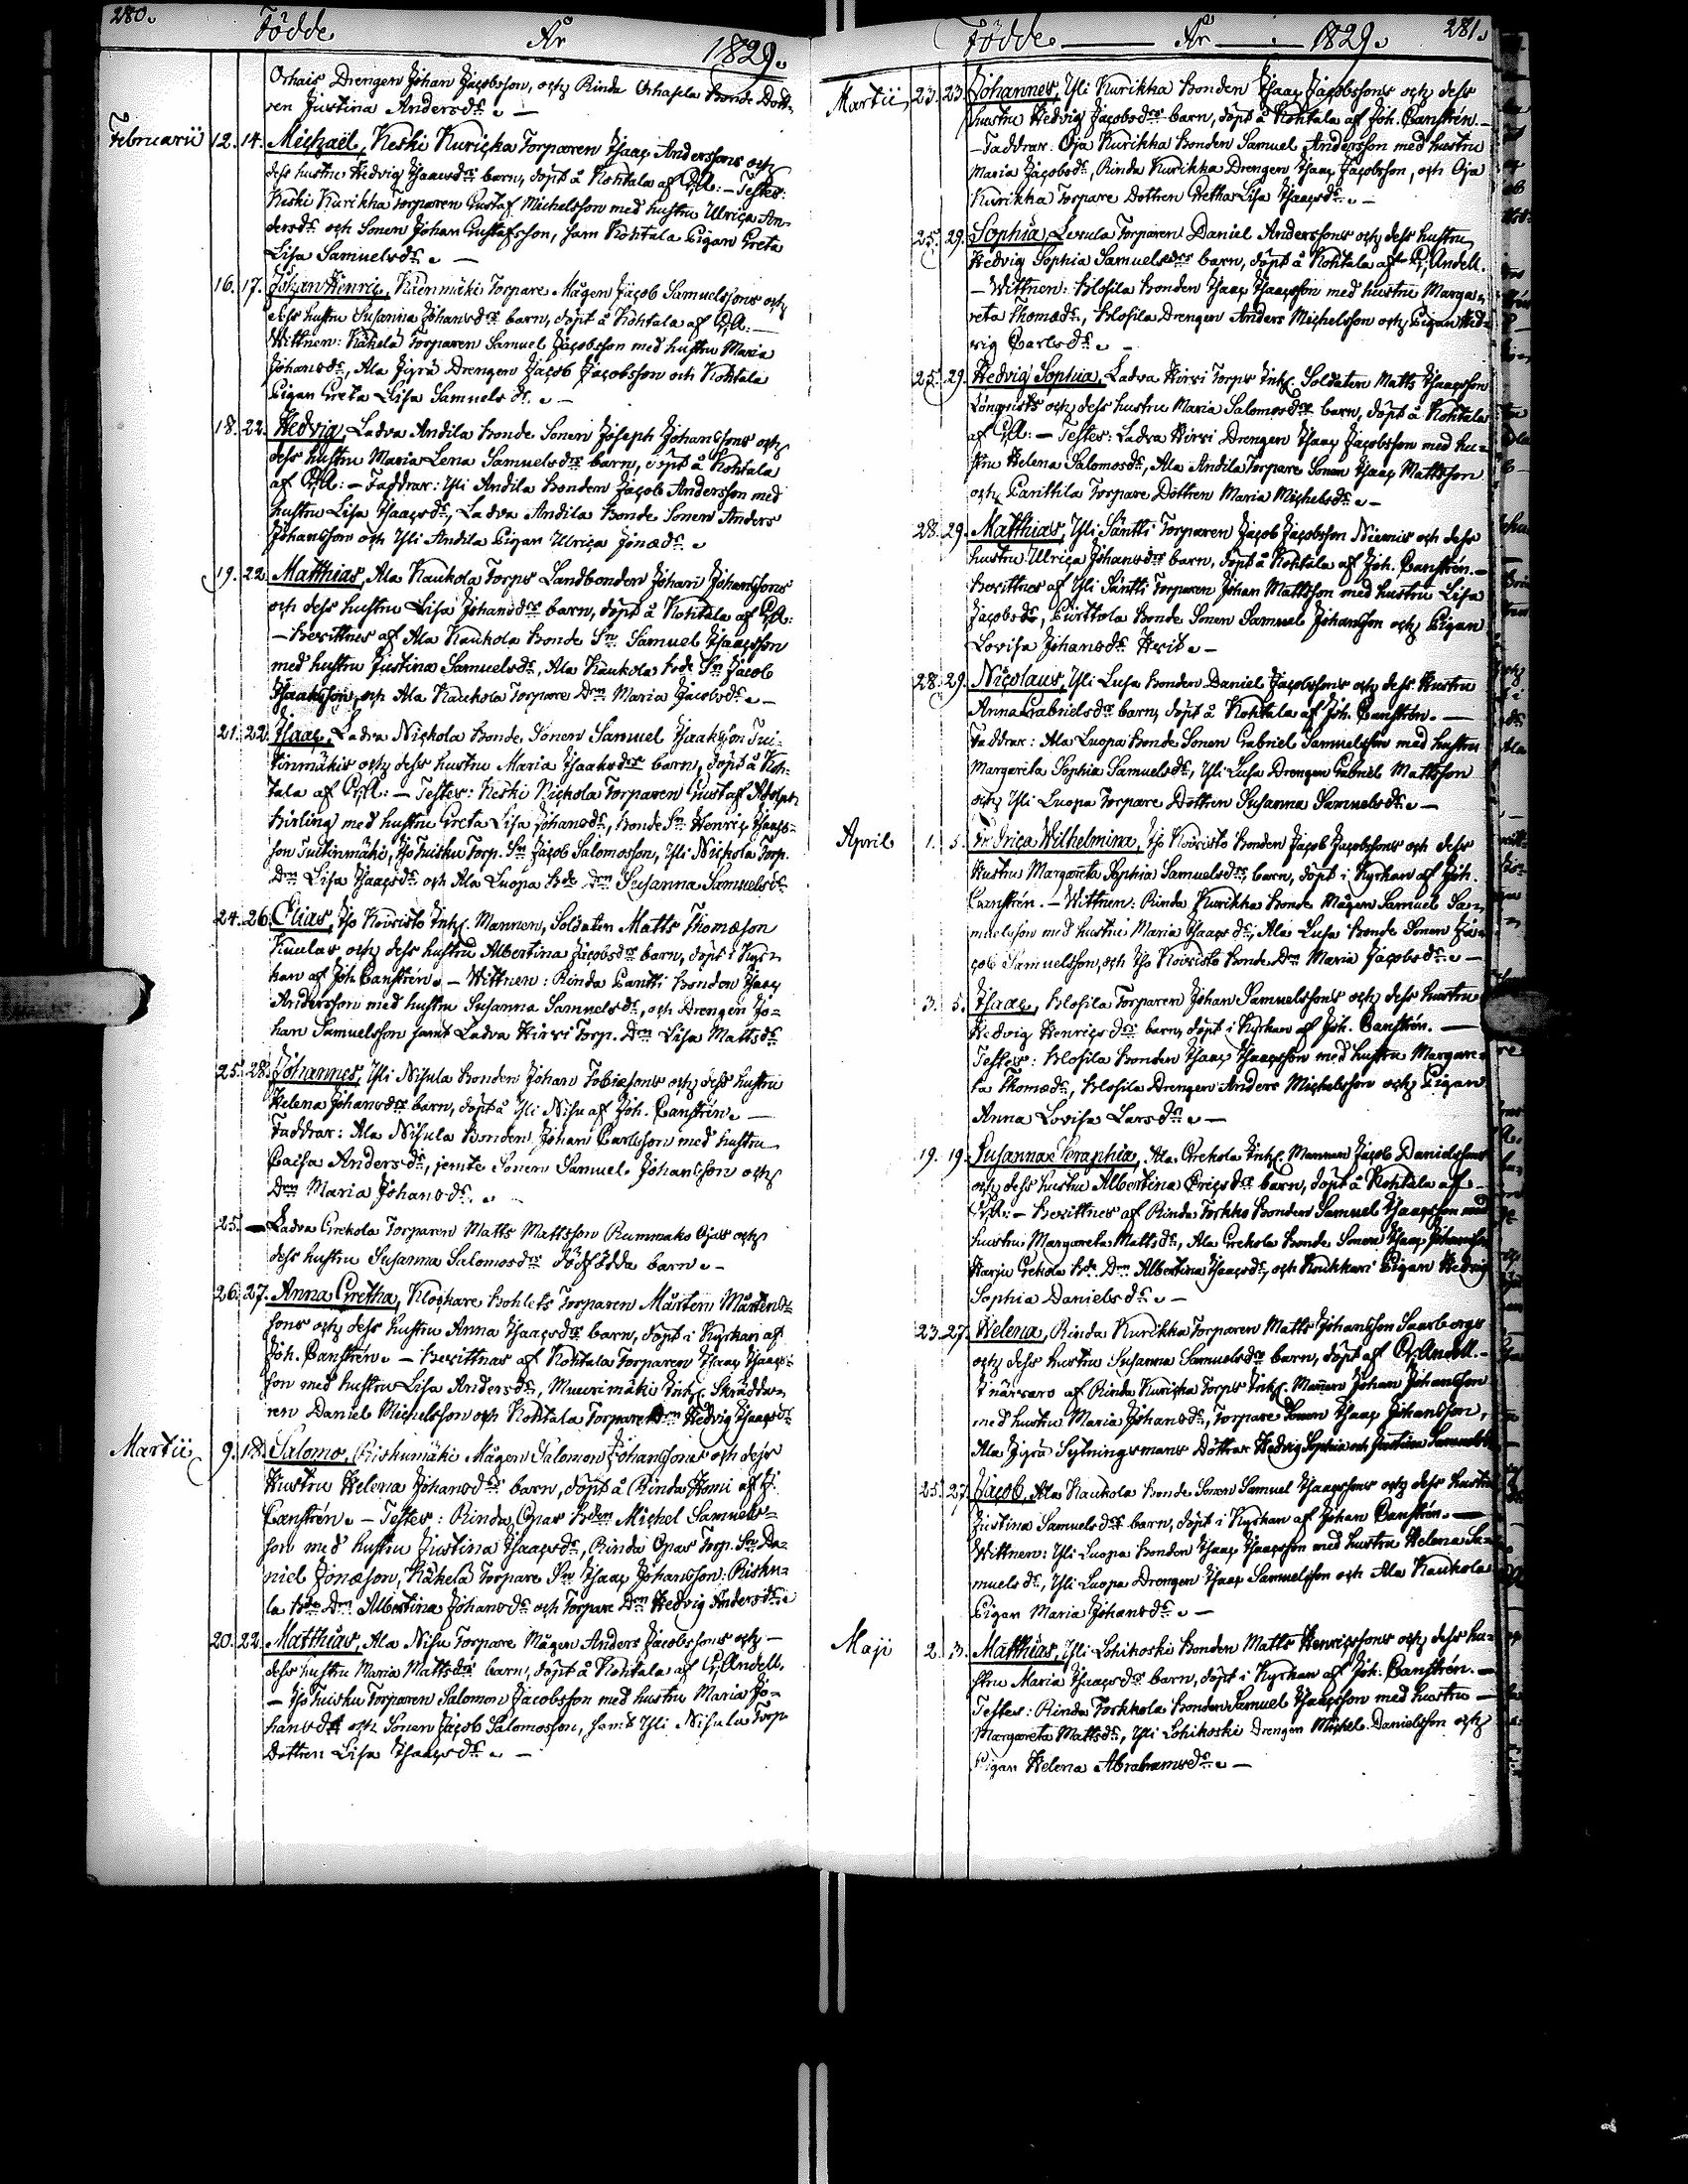 280.
Födde År 1829.
Orhais Drengen Johan Jacobsson, och Rinda Orhasela Bonde Dott-
ren Justina Andersdr. —
Februarii 12. 14. Michaël, Keski Kuricka Torparen Isaac Anderssons och
dess hustru Hedvig Isaacsdrs barn, döpt å Kohtala af P.A: — Testes:
Keski Kurikka Torparen Gustaf Michelsson med hustru Ulrica An-
dersdr och Sonen Johan Gustafsson, sam Kohtala Pigan Greta
Lisa Samuelsdr. —
16. 17. Johan Henric, Käenmäki Torpare Mågen Jacob Samuelssons och
dess hustru Susanna Johansdrs barn, döpt å Kohtala af P.A: —
Wittnen: Käkelä Torparen Samuel Jacobsson med hustru Maria
Johansdr, Ala Jyrä Drengen Jacob Jacobsson och Kohtala
Pigan Greta Lisa Samuelsdr. —
18. 22. Hedvig, Ladva Andila Bonde Sonen Joseph Johanssons och
dess hustru Maria Lena Samuelsdrs barn, döpt å Kohtala
af P.A: — Faddrar: Yli Andila Bonden Jacob Andersson med
hustru Lisa Isaacsdr, Ladva Andila Bonde Sonen Anders
Johansson och Yli Andila Pigan Ulrica Jonædr.
19. 22. Matthias, Ala Kaukola Torps Landbonden Johan Johanssons
och dess hustru Lisa Johansdrs barn, döpt å Kohtala af P.A:
— Bevittnes af Ala Kaukola Bonde Sn Samuel Isaacsson
med hustru Justina Samuelsdr, Ala Kaukola bde Sn Jacob
Isaaksson, och Ala Kaukola Torpare Drn Maria Jacobsdr. —
21. 22. Isaac, Ladva Nickola Bonde Sonen Samuel Isaaksson Tui-
tinmäkis och dess hustru Maria Isaaksdrs barn, döpt å Koh-
tala af P.A: — Testes: Keski Nickola Torparen Gustaf Adolph
Birling med hustru Greta Lisa Johansdr, Bonde Sn Henric Isaacs-
son Tuitinmäki, Iso Tuisku Torp. Sn Jacob Salomosson, Yli Nickola Torp.
Drn Lisa Isaacsdr och Ala Luopa Bde Drn Susanna Samuelsdr
24. 26. Elias, Iso Koivisto Inh. Mannen, Soldaten Matts Thomæson
Kuulas och dess hustru Albertina Jacobsdrs barn, döpt i Kyr-
kan af Joh. Canstrén. — Wittnen: Rinda Pantti Bonden Isaac
Andersson med hustru Susanna Samuelsdr, och Drengen Jo-
han Samuelsson samt Ladva Hirvi Torp. Drn Lisa Mattsdr
25. 28. Johannes, Yli Nisula Bonden Johan Tobiæsons och dess hustru
Helena Johansdrs barn, döpt å Yli Nisu af Joh. Canstrén. —
Faddrar: Ala Nisula Bonden Johan Carlsson med hustru
Caisa Andersdr, jemte Sonen Samuel Johansson och
Drn Maria Johansdr.
25. — Ladva Grekola Torparen Matts Mattsson Rummako Ojas och
dess hustru Susanna Salomosdrs Dödfödda barn. —
26. 27. Anna Gretha, Klockare Bohlets Torparen Mårten Mårtens-
sons och dess hustru Anna Isaacsdrs barn, döpt i Kyrkan af
Joh. Canstrén. — Bevittnas af Kohtala Torparen Isaac Isaacs-
son med hustru Lisa Andersdr, Muurimäki Inh. Skrädda-
ren Daniel Michelsson och Kohtala Torpare Drn Hedvig Isaacsdr
Martii 9. 18. Salomo, Riskumäki Mågen Salomon Johanssons och dess
Hustru Helena Johansdrs barn, döpt å Rinda Komi af J.
Canstrén. — Testes: Rinda Opas Bden Michel Samuels-
son med hustru Justina Isaacsdr, Rinda Opas Torp. Sn Da-
niel Jonæson, Käkelä Torpare Sn Isaac Johansson: Risku-
la bde Drn Albertina Johansdr och Torpare Drn Hedvig Andersdr
20. 22. Matthias, Ala Nisu Torpare Mågen Anders Jacobssons och —
dess hustru Maria Mattsdrs barn, döpt å Kohtala af P. Andell.
— Iso Tuisku Torparen Salomon Jacobsson med hustru Maria Jo-
hansdr och Sonen Jacob Salomosson, samt Yli Nisula Torp
Dottren Lisa Isaacsdr. —
281.
Födde — År — 1829.
Martii 23. 23. Johannes, Yli Kurikka Bonden Isaac Jacobssons och dess
hustru Hedvig Jacobsdrs barn, döpt å Kohtala af Joh. Canstrén. —
— Faddrar. Oja Kurikka Bonden Samuel Andersson med hustru
Maria Jacobsdr, Rinda Kurikka Drengen Isaac Jacobsson, och Oja
Kurikka Torpare Dottren Gretha Lisa Isaacsdr. —
25. 29. Sophia, Levula Torparen Daniel Anderssons och dess hustru
Hedvig Sophia Samuelsdrs barn, döpt å Kohtala af P. Andell.
— Wittnen: Klosila Bonden Isaac Isaacsson med hustru Marga-
reta Thomædr, Klosila Drengen Anders Michelsson och Pigan Hed-
vig Carlsdr. —
25. 29. Hedvig Sophia, Ladva Hirvi Torps Inh. Soldaten Matts Isaacsson
Lönqvists och dess hustru Maria Salomosdrs barn, döpt å Kohtala
af P.A: — Testes: Ladva Hirvi Drengen Isaac Jacobsson med hu-
stru Helena Salomosdr, Ala Andila Torpare Sonen Isaac Mattsson
och Panttila Torpare Dottren Maria Michelsdr. —
28. 29. Matthias, Yli Säntti Torparen Jacob Jacobsson Niemis och dess
hustru Ulrica Johansdrs barn, döpt å Kohtala af Joh. Canstrén. —
Bevittnes af Yli Säntti Torparen Johan Mattsson med hustru Lisa
Jacobsdr, Purttola Bonde Sonen Samuel Johansson och Pigan
Lovisa Johansdr Kvist. —
28. 29. Nicolaus, Yli Lusa Bonden Daniel Jacobssons och dess Hustru
Anna Gabrielsdrs barn, döpt å Kohtala af Joh. Canstrén. —
Faddrar: Ala Luopa Bonde Sonen Gabriel Samuelsson med hustru
Margareta Sophia Samuelsdr, Yli Lusa Drengen Gabriel Mattsson
och Yli Luopa Torpare Dottren Susanna Samuelsdr. —
April 1. 5. Fredrica Wilhelmina, Iso Koivisto Bonden Jacob Jacobssons och dess
Hustru Margareta Sophia Samuelsdrs barn, döpt i Kyrkan af Joh.
Canstrén. — Wittnen: Rinda Kurikka Bonde Mågen Samuel Sa-
muelsson med hustru Maria Isaacsdr, Ala Lusa Bonde Sonen Ja-
cob Samuelsson, och Iso Koivisto Bonde Drn Maria Jacobsdr. —
3. 5. Isaac, Klosila Torparen Johan Samuelssons och dess hustru
Hedvig Henricsdrs barn, döpt i Kyrkan af Joh. Canstrén. —
Testes: Klosila Bonden Isaac Isaacsson med hustru Margare-
ta Thomædr, Klosila Drengen Anders Michelsson och Pigan
Anna Lovisa Larsdr. —
19. 19. Susanna Seraphia, Ala Grekola Inh. Mannen Jacob Danielssons
och dess hustru Albertina Ericsdrs barn, döpt å Kohtala af
P.A: — Bevittnes af Rinda Torkko Bonden Samuel Isaacsson med
hustru Margareta Mattsdr, Ala Grekola Bonde Sonen Isaac Johansson
Harju Grekola Bde Drn Albertina Isaacsdr, och Koukkari Pigan Hedvig
Sophia Danielsdr. —
23. 27. Helena, Rinda Kurikka Torparen Matts Johansson Saarborgs
och dess hustru Susanna Samuelsdrs barn, döpt af P. Andell. —
I närvaro af Rinda Kuricka Torps Inh. Mannen Johan Johansson
med hustru Maria Johansdr, Torpare Sonen Isaac Johansson,
Ala Jyrä Sytningsmans Döttrar Hedvig Sophia och Justina Samuelsdr
25. 27. Jacob, Ala Kaukola Bonde Sonen Samuel Isaacssons och dess hustru
Justina Samuelsdrs barn, döpt i Kyrkan af Johan Canstrén. —
Wittnen: Yli Luopa Bonden Isaac Isaacsson med hustru Helena Sa-
muelsdr, Yli Luopa Drengen Isaac Samuelsson och Ala Kaukola
Pigan Maria Johansdr. —
Maji 2. 3. Matthias, Yli Lohikoski Bonden Matts Henricssons och dess hu-
stru Maria Isaacsdrs barn, döpt i Kyrkan af Joh. Canstrén. —
Testes: Rinda Torkkola Bonden Samuel Isaacsson med hustru —
Margareta Mattsdr, Yli Lohikoski Drengen Michel Danielsson och
Pigan Helena Abrahamsdr. —